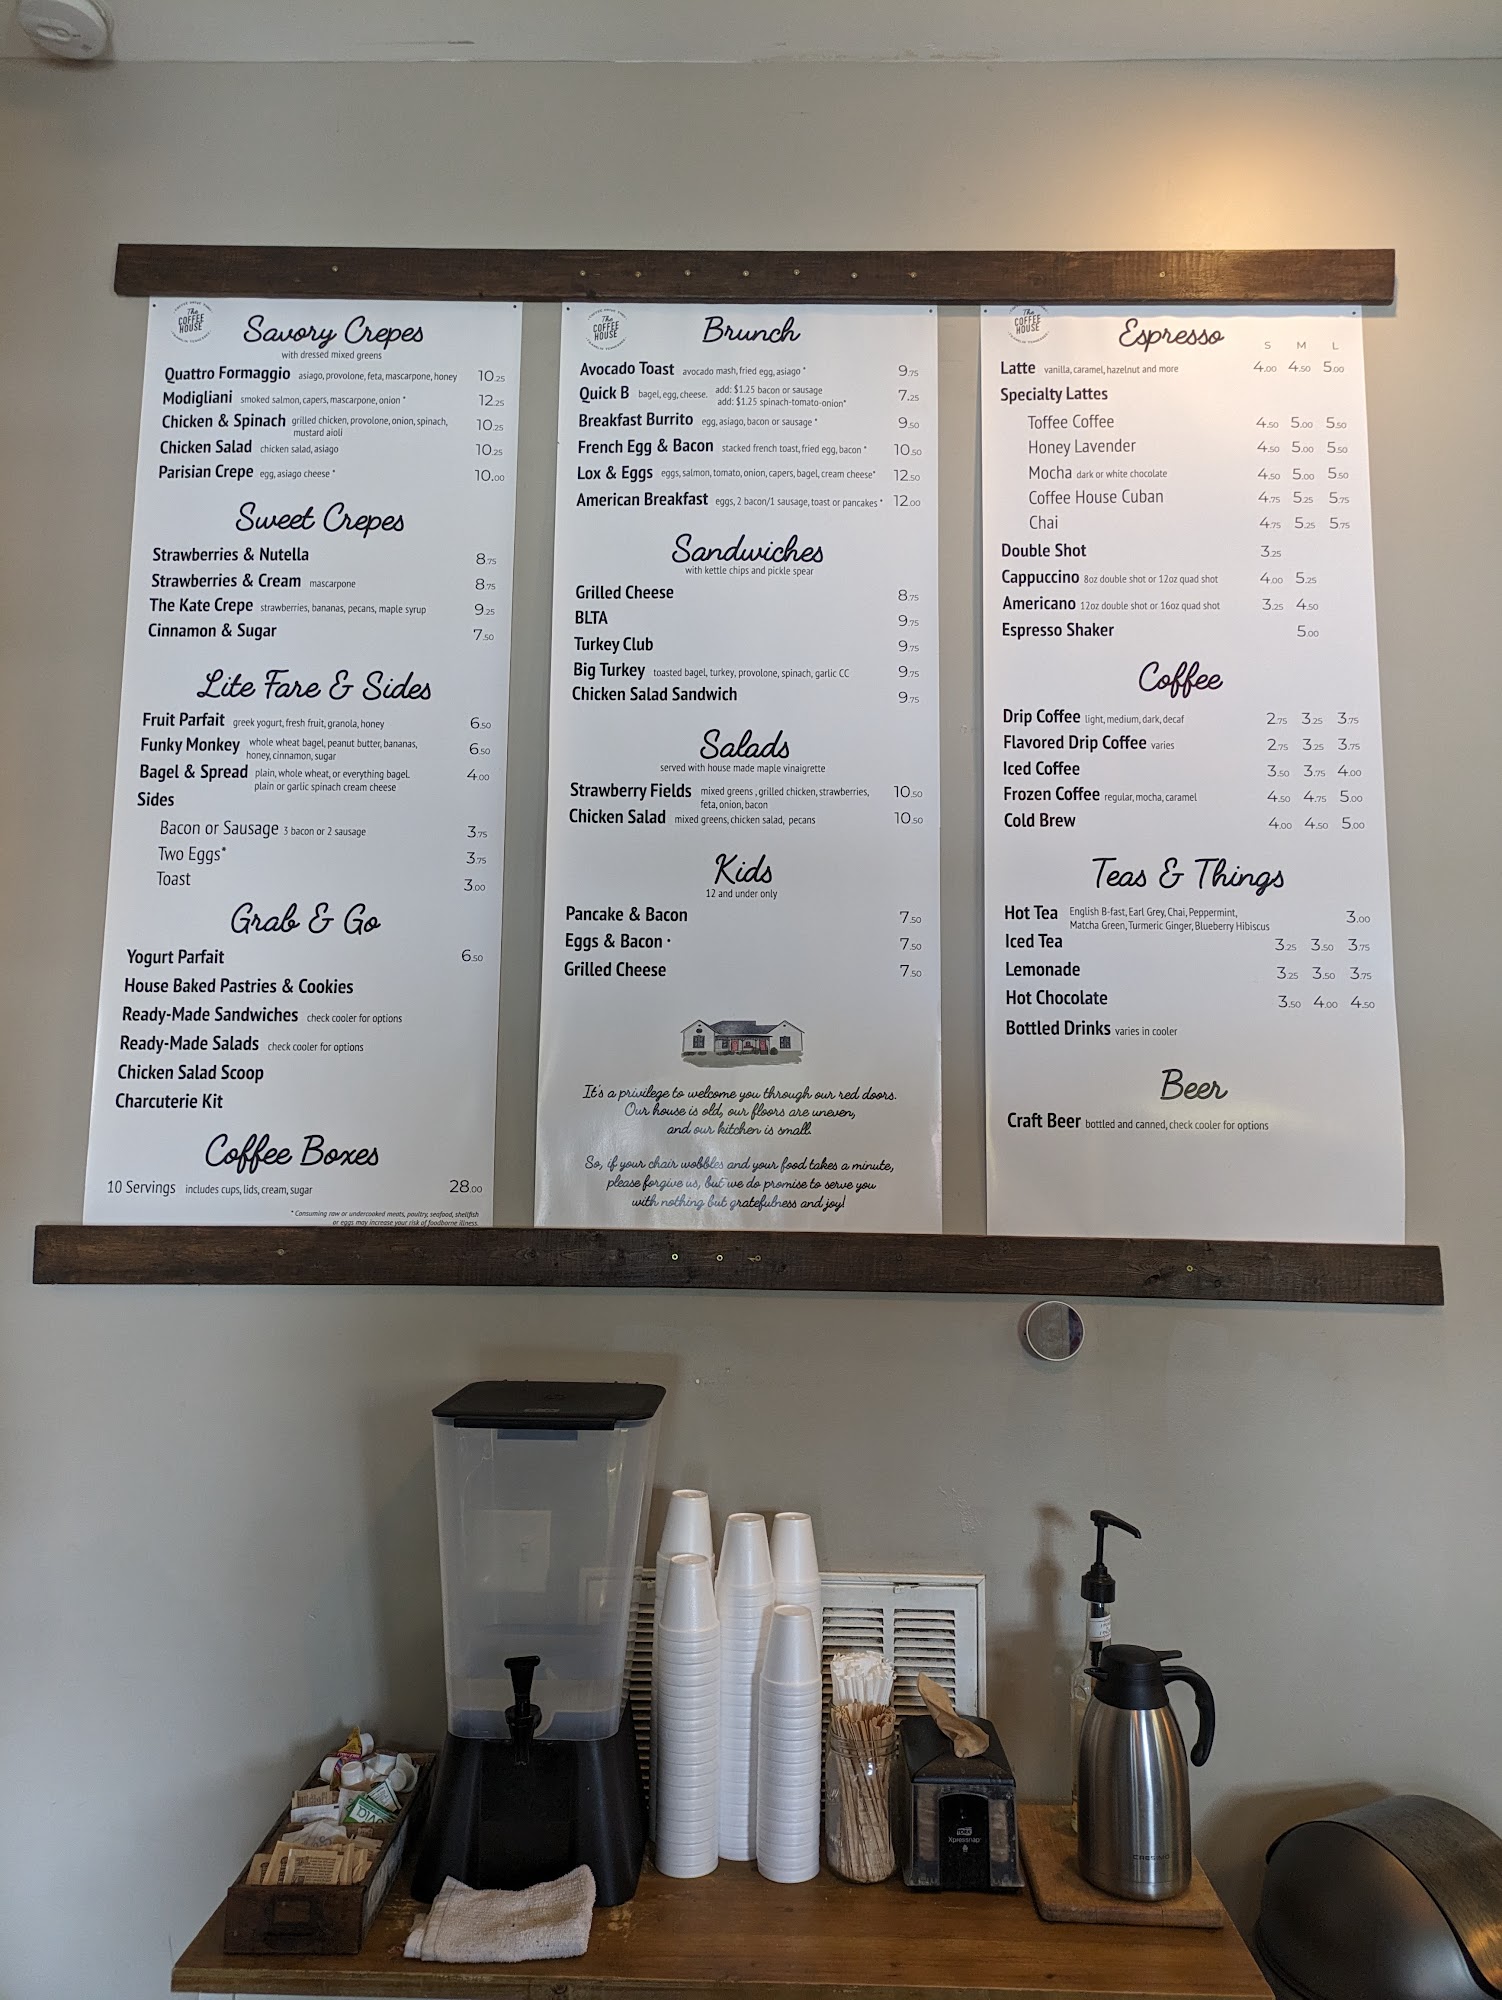 The
COFFEE
HOUSE
Savory Crepes
with dressed mixed greens
Quattro Formaggio asiago, provolone, feta, mascarpone, honey 10.25
Modigliani smoked salmon, capers, mascarpone, onion * 12.25
Chicken & Spinach grilled chicken, provolone, onion, spinach, 10.25
mustard aioli
Chicken Salad chicken salad, asiago 10.25
Parisian Crepe egg, asiago cheese * 10.00
Sweet Crepes
Strawberries & Nutella 8.75
Strawberries & Cream mascarpone 8.75
The Kate Crepe strawberries, bananas, pecans, maple syrup 9.25
Cinnamon & Sugar 7.50
Lite Fare & Sides
Fruit Parfait greek yogurt, fresh fruit, granola, honey 6.50
Funky Monkey whole wheat bagel, peanut butter, bananas, 6.50
honey, cinnamon, sugar
Bagel & Spread plain, whole wheat, or everything bagel. 4.00
plain or garlic spinach cream cheese
Sides
Bacon or Sausage 3 bacon or 2 sausage 3.75
Two Eggs* 3.75
Toast 3.00
Grab & Go
Yogurt Parfait 6.50
House Baked Pastries & Cookies
Ready-Made Sandwiches check cooler for options
Ready-Made Salads check cooler for options
Chicken Salad Scoop
Charcuterie Kit
Coffee Boxes
10 Servings includes cups, lids, cream, sugar 28.00
* Consuming raw or undercooked meats, poultry, seafood, shellfish
or eggs may increase your risk of foodborne illness.
The
COFFEE
HOUSE
Brunch
Avocado Toast avocado mash, fried egg, asiago * 9.75
Quick B bagel, egg, cheese. add: $1.25 bacon or sausage 7.25
add: $1.25 spinach-tomato-onion*
Breakfast Burrito egg, asiago, bacon or sausage * 9.50
French Egg & Bacon stacked french toast, fried egg, bacon * 10.50
Lox & Eggs eggs, salmon, tomato, onion, capers, bagel, cream cheese* 12.50
American Breakfast eggs, 2 bacon/1 sausage, toast or pancakes * 12.00
Sandwiches
with kettle chips and pickle spear
Grilled Cheese 8.75
BLTA 9.75
Turkey Club 9.75
Big Turkey toasted bagel, turkey, provolone, spinach, garlic CC 9.75
Chicken Salad Sandwich 9.75
Salads
served with house made maple vinaigrette
Strawberry Fields mixed greens , grilled chicken, strawberries, 10.50
feta, onion, bacon
Chicken Salad mixed greens, chicken salad, pecans 10.50
Kids
12 and under only
Pancake & Bacon 7.50
Eggs & Bacon * 7.50
Grilled Cheese 7.50
It's a privilege to welcome you through our red doors.
Our house is old, our floors are uneven,
and our kitchen is small.
So, if your chair wobbles and your food takes a minute,
please forgive us, but we do promise to serve you
with nothing but gratefulness and joy!
The
COFFEE
HOUSE
Espresso
S M L
Latte vanilla, caramel, hazelnut and more 4.00 4.50 5.00
Specialty Lattes
Toffee Coffee 4.50 5.00 5.50
Honey Lavender 4.50 5.00 5.50
Mocha dark or white chocolate 4.50 5.00 5.50
Coffee House Cuban 4.75 5.25 5.75
Chai 4.75 5.25 5.75
Double Shot 3.25
Cappuccino 8oz double shot or 12oz quad shot 4.00 5.25
Americano 12oz double shot or 16oz quad shot 3.25 4.50
Espresso Shaker 5.00
Coffee
Drip Coffee light, medium, dark, decaf 2.75 3.25 3.75
Flavored Drip Coffee varies 2.75 3.25 3.75
Iced Coffee 3.50 3.75 4.00
Frozen Coffee regular, mocha, caramel 4.50 4.75 5.00
Cold Brew 4.00 4.50 5.00
Teas & Things
Hot Tea English B-fast, Earl Grey, Chai, Peppermint, 3.00
Matcha Green, Turmeric Ginger, Blueberry Hibiscus
Iced Tea 3.25 3.50 3.75
Lemonade 3.25 3.50 3.75
Hot Chocolate 3.50 4.00 4.50
Bottled Drinks varies in cooler
Beer
Craft Beer bottled and canned, check cooler for options
Xpressnap